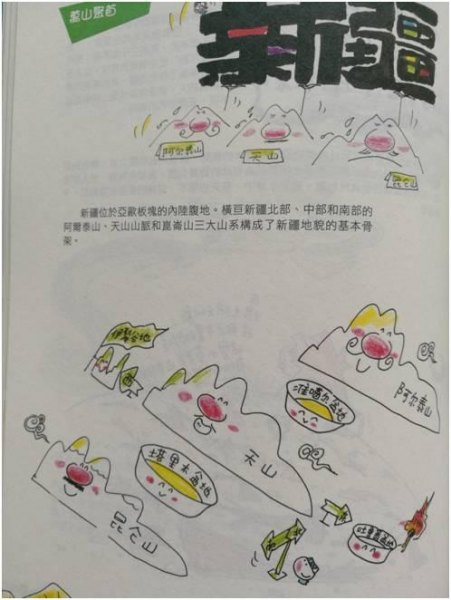 萬山聚首
新疆
阿尔泰山
天山
昆仑山
新疆位於亞歐板塊的內陸腹地。橫亘新疆北部、中部和南部的
阿爾泰山、天山山脈和崑崙山三大山系構成了新疆地貌的基本骨
架。
伊犁谷地
准噶尔盆地
阿尔泰山
天山
塔里木盆地
昆仑山
吐鲁番盆地